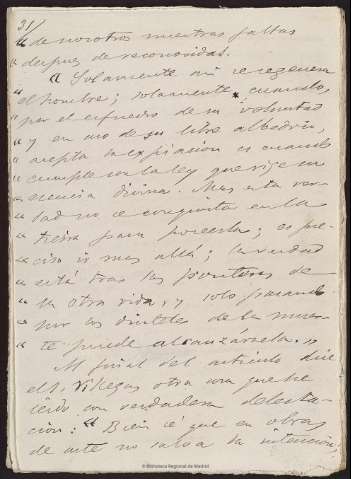 31/
" de nosotros mientras faltas
" despues de reconocidas.
" Solamente asi se regenera
" el hombre; solamente cuando,
" por el esfuerzo de su voluntad
" y en uso de su libre albedrio,
" acepta la expiacion es cuando
" cumple con la ley que rige su
" esencia divina. Mas esta ver-
" dad no se conquista en la
" tierra para poseerla; es pre-
" ciso ir mas allá; la verdad
" está tras las fronteras de
" la otra vida, y solo pasando
" por los dinteles de la muer-
" te puede alcanzársela. "
Al final del articulo dice
el Sr. Villegas otra cosa que he
leido con verdadera delecta-
cion: " Bien se que en obras
de arte no salva la intencion,
© Biblioteca Regional de Madrid